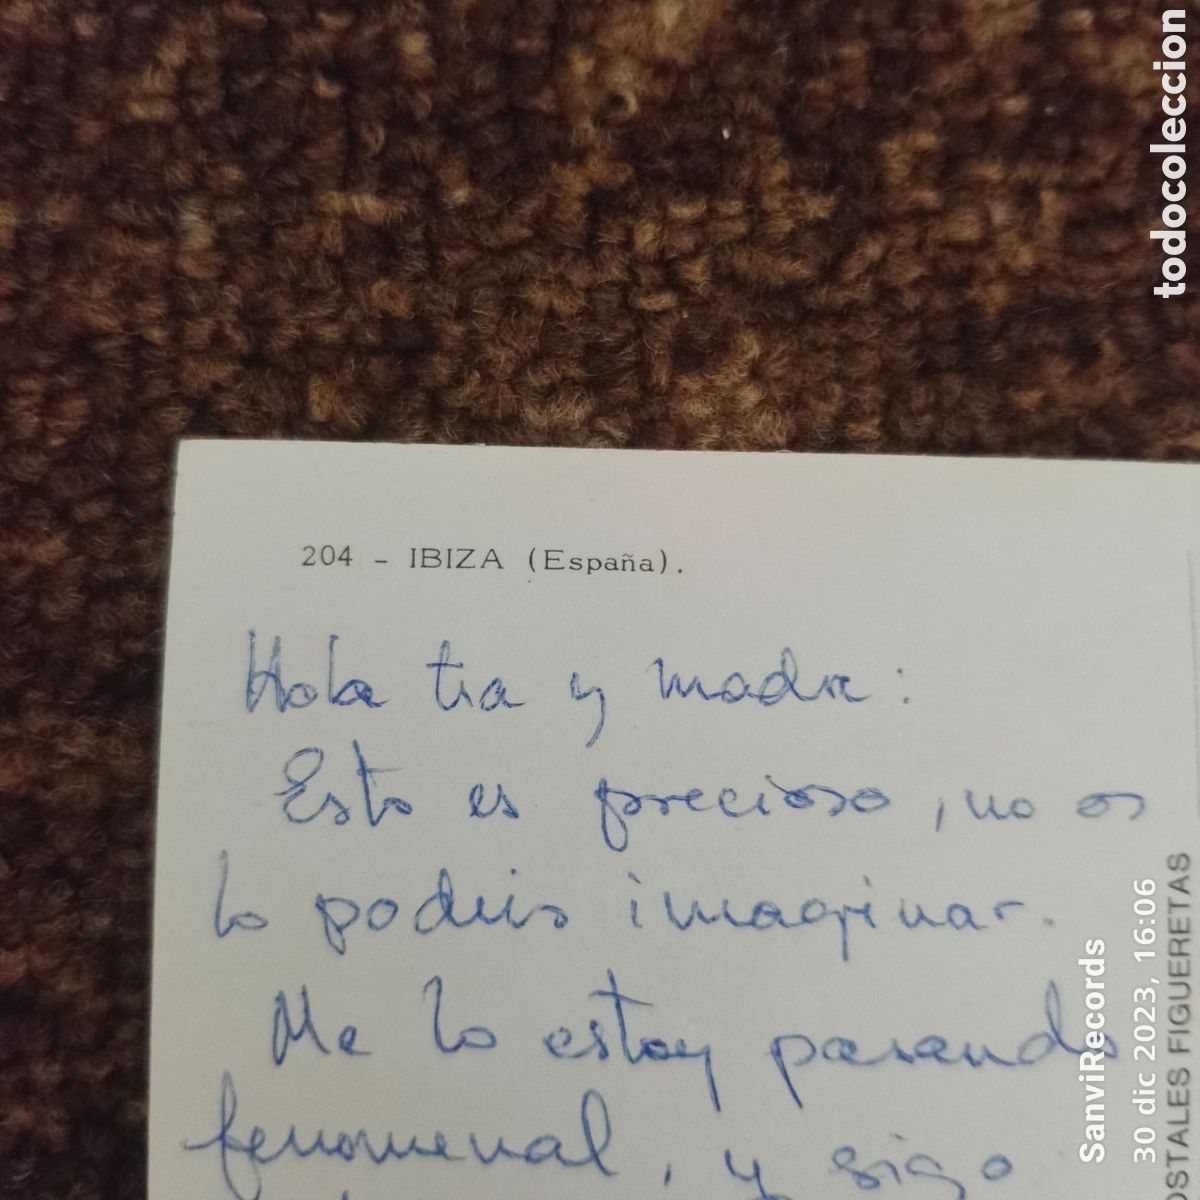 todocoleccion
204 - IBIZA (España).
Hola tia y madre :
Esto es precioso, no os
lo podeis imaginar.
Me lo estoy pasando
fenomenal, y sigo
OSTALES FIGUERETAS
SanviRecords
30 dic 2023, 16:06